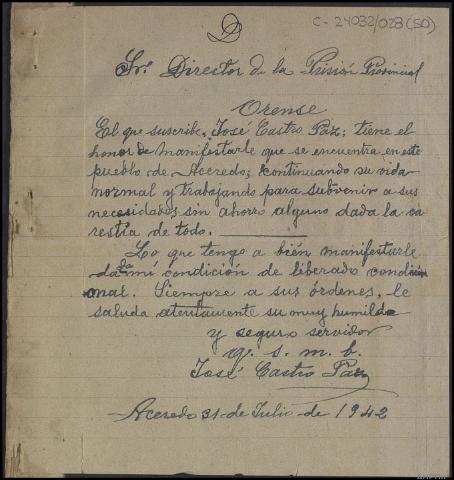 C-24032/028(50)
D
Sr. Director de la Prisión Provincial
Orense
El que suscribe, José Castro Paz; tiene el
honor de manifestarle que se encuentra en este
pueblo de Aceredo; continuando su vida
normal y trabajando para subvenir a sus
necesidades sin ahorro alguno dada la ca
restia de todo.
Lo que tengo a bién manifestarle
dada mi condición de liberado condicio
nal. Siempre a sus órdenes, le
saluda atentamente su muy humilde
y seguro servidor
q. s. m. b.
José Castro Paz
Aceredo 31 de Julio de 1942